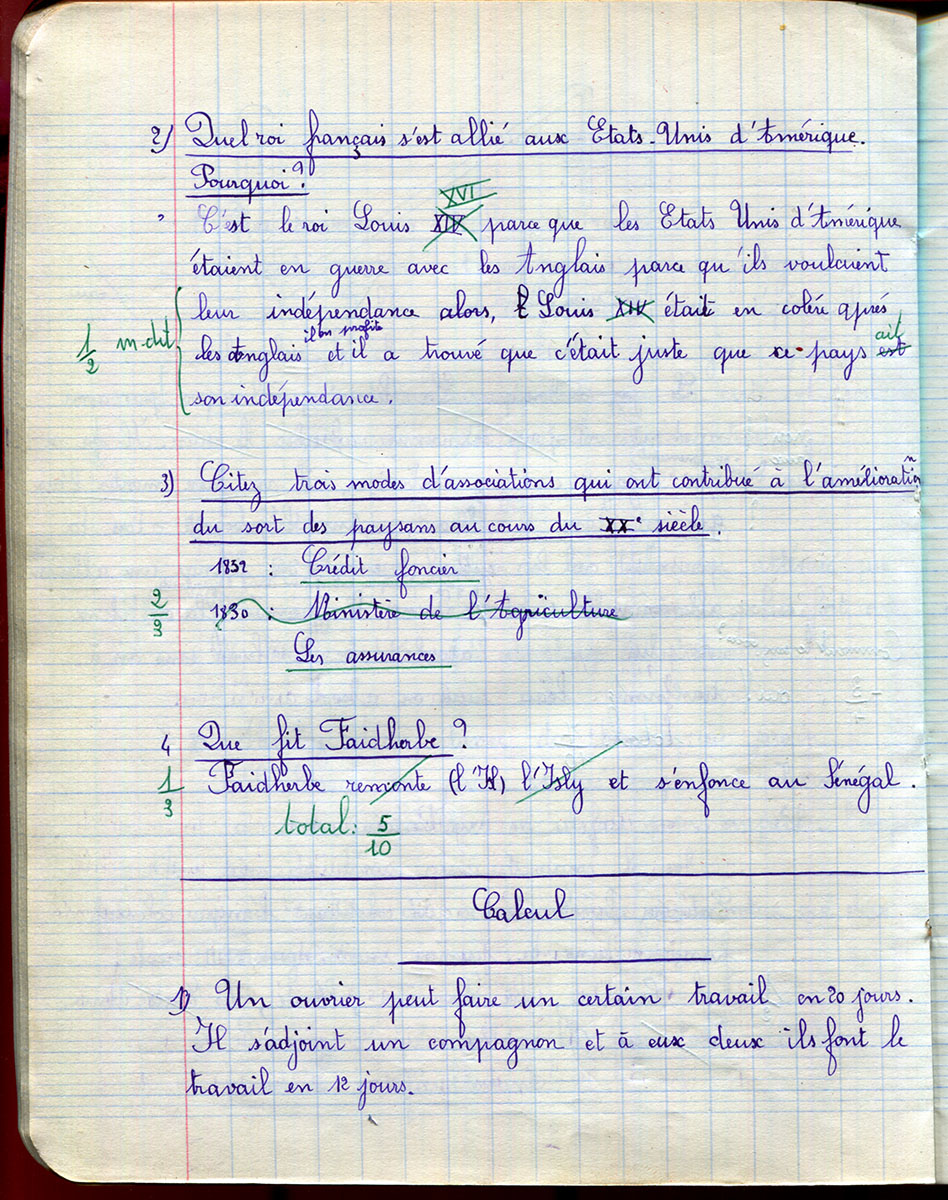 2) Quel roi français s'est allié aux Etats-Unis d'Amérique.
Pourquoi?
XVI
C'est le roi Louis XIV parce que les Etats Unis d'Amérique
étaient en guerre avec les Anglais parce qu'ils voulaient
leur indépendance alors, Louis XIV était en colére aprés
il en profite
ait
1/2 m-dit les Anglais et il a trouvé que c'était juste que ce pays est
son indépendance.
3) Citez trois modes d'associations qui ont contribué à l'améliorati
on
du sort des paysans au cours du XXe siècle.
1852 : Crédit foncier
2/3 1830 : Ministère de l'Agriculture
Les assurances
4 Que fit Faidherbe?
1/3 Faidherbe remonte (l'H) l'Isly et s'enfonce au Sénégal.
total: 5/10
Calcul
1) Un ouvrier peut faire un certain travail en 20 jours.
Il s'adjoint un compagnon et à eux deux ils font le
travail en 12 jours.